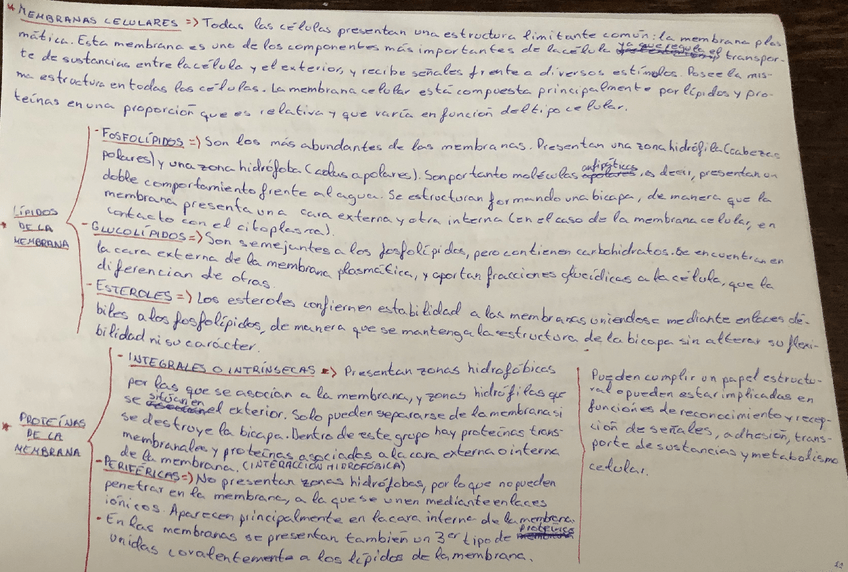 * MEMBRANAS CELULARES => Todas las células presentan una estructura limitante común: la membrana plas-
mática. Esta membrana es uno de los componentes más importantes de la célula ya que regula el transpor-
te de sustancias entre la célula y el exterior, y recibe señales frente a diversos estímulos. Posee la mis-
ma estructura en todas las células. La membrana celular está compuesta principalmente por lípidos y pro-
teínas en una proporción que es relativa y que varía en función del tipo celular.
* LÍPIDOS
DE LA
MEMBRANA
- FOSFOLÍPIDOS => Son los más abundantes de las membranas. Presentan una zona hidrófila (cabezas
polares) y una zona hidrófoba (colas apolares). Son por tanto moléculas anfipáticas, es decir, presentan un
doble comportamiento frente al agua. Se estructuran formando una bicapa, de manera que la
membrana presenta una cara externa y otra interna (en el caso de la membrana celular, en
contacto con el citoplasma).
- GLUCOLÍPIDOS => Son semejantes a los fosfolípidos, pero contienen carbohidratos. Se encuentran en
la cara externa de la membrana plasmática, y aportan fracciones glucídicas a la célula, que la
diferencian de otras.
- ESTEROLES => Los esteroles confiernen estabilidad a las membranas uniendose mediante enlaces dé-
biles a los fosfolípidos, de manera que se mantenga la estructura de la bicapa sin alterar su flexi-
bilidad ni su carácter.
* PROTEÍNAS
DE LA
MEMBRANA
- INTEGRALES O INTRÍNSECAS => Presentan zonas hidrofóbicas
por las que se asocian a la membrana, y zonas hidrófilas que
se sitúan en el exterior. Solo pueden separarse de la membrana si
se destruye la bicapa. Dentro de este grupo hay proteínas trans-
membranales y proteínas asociadas a la cara externa o interna
de la membrana. (INTERACCIÓN HIDROFÓBICA)
- PERIFÉRICAS => No presentan zonas hidrófobas, por lo que no pueden
penetrar en la membrana, a la que se unen mediante enlaces
iónicos. Aparecen principalmente en la cara interna de la membrana.
- En las membranas se presentan también un 3er tipo de proteínas
unidas covalentemente a los lípidos de la membrana.
Pueden cumplir un papel estructu-
ral o pueden estar implicadas en
funciones de reconocimiento y recep-
ción de señales, adhesión, trans-
porte de sustancias y metabolismo
celular.